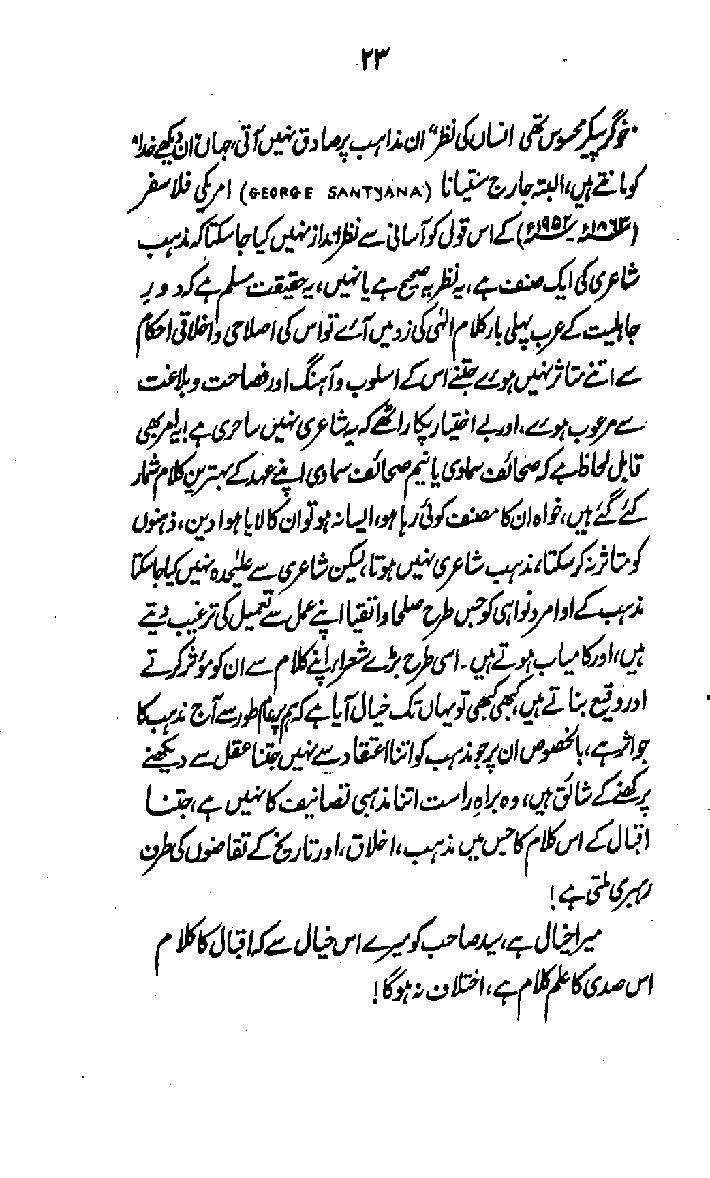 ۲۳
"خوگرِ پیکرِ محسوس تھی انساں کی نظر" ان مذاہب پر صادق نہیں آتی، جہاں "ان دیکھے خدا"
کو مانتے ہیں، البتہ جارج سنتیانا (GEORGE SANTYANA) امریکی فلاسفر
(۱۸۶۳ء-۱۹۵۲ء) کے اس قول کو آسانی سے نظر انداز نہیں کیا جا سکتا کہ مذہب
شاعری کی ایک صنف ہے، یہ نظریہ صحیح ہے یا نہیں، یہ حقیقت مسلم ہے کہ دورِ
جاہلیت کے عرب پہلی بار کلام الٰہی کی زد میں آئے تو اس کی اصلاحی و اخلاقی احکام
سے اتنے متاثر نہیں ہوئے جتنے اس کے اسلوب و آہنگ اور فصاحت و بلاغت
سے مرعوب ہوئے، اور بے اختیار پکار اٹھے کہ یہ شاعری نہیں ساحری ہے، یہ امر بھی
قابل لحاظ ہے کہ صحائف سماوی یا نیم صحائف سماوی اپنے عہد کے بہترین کلام شمار
کئے گئے ہیں، خواہ ان کا مصنف کوئی رہا ہو، ایسا نہ ہو تو ان کا لایا ہوا دین، ذہنوں
کو متاثر نہ کر سکتا، مذہب شاعری نہیں ہوتا، لیکن شاعری سے علیٰحدہ نہیں کیا جا سکتا
مذہب کے اوامر و نواہی کو جس طرح صلحا و اتقیا اپنے عمل سے تعمیل کی ترغیب دیتے
ہیں، اور کامیاب ہوتے ہیں۔ اسی طرح بڑے شعراء اپنے کلام سے ان کو مؤثر کرتے
اور وقیع بناتے ہیں، کبھی کبھی تو یہاں تک خیال آیا ہے کہ ہم پر عام طور سے آج مذہب کا
جو اثر ہے، بالخصوص ان پر جو مذہب کو اتنا اعتقاد سے نہیں جتنا عقل سے دیکھنے
پرکھنے کے شائق ہیں، وہ براہِ راست اتنا مذہبی تصانیف کا نہیں ہے، جتنا
اقبال کے اس کلام کا جس میں مذہب، اخلاق، اور تاریخ کے تقاضوں کی طرف
رہبری ملتی ہے!
میرا خیال ہے، سید صاحب کو میرے اس خیال سے کہ اقبال کا کلام
اس صدی کا علم کلام ہے، اختلاف نہ ہو گا!